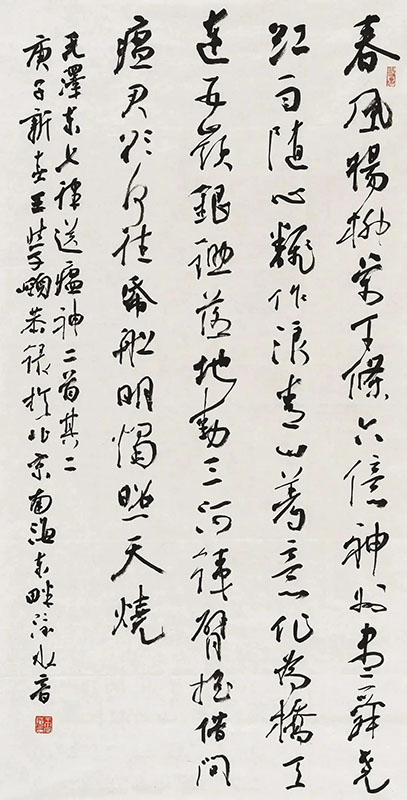 春風楊柳萬千條六億神州盡舜堯
紅雨隨心翻作浪青山著意化為橋天
連五嶺銀鋤落地動三河鐵臂搖借問
瘟君欲何往紙船明燭照天燒
毛澤東七律送瘟神二首其二
庚子新春王學嶺恭錄於北京南海東畔流水音